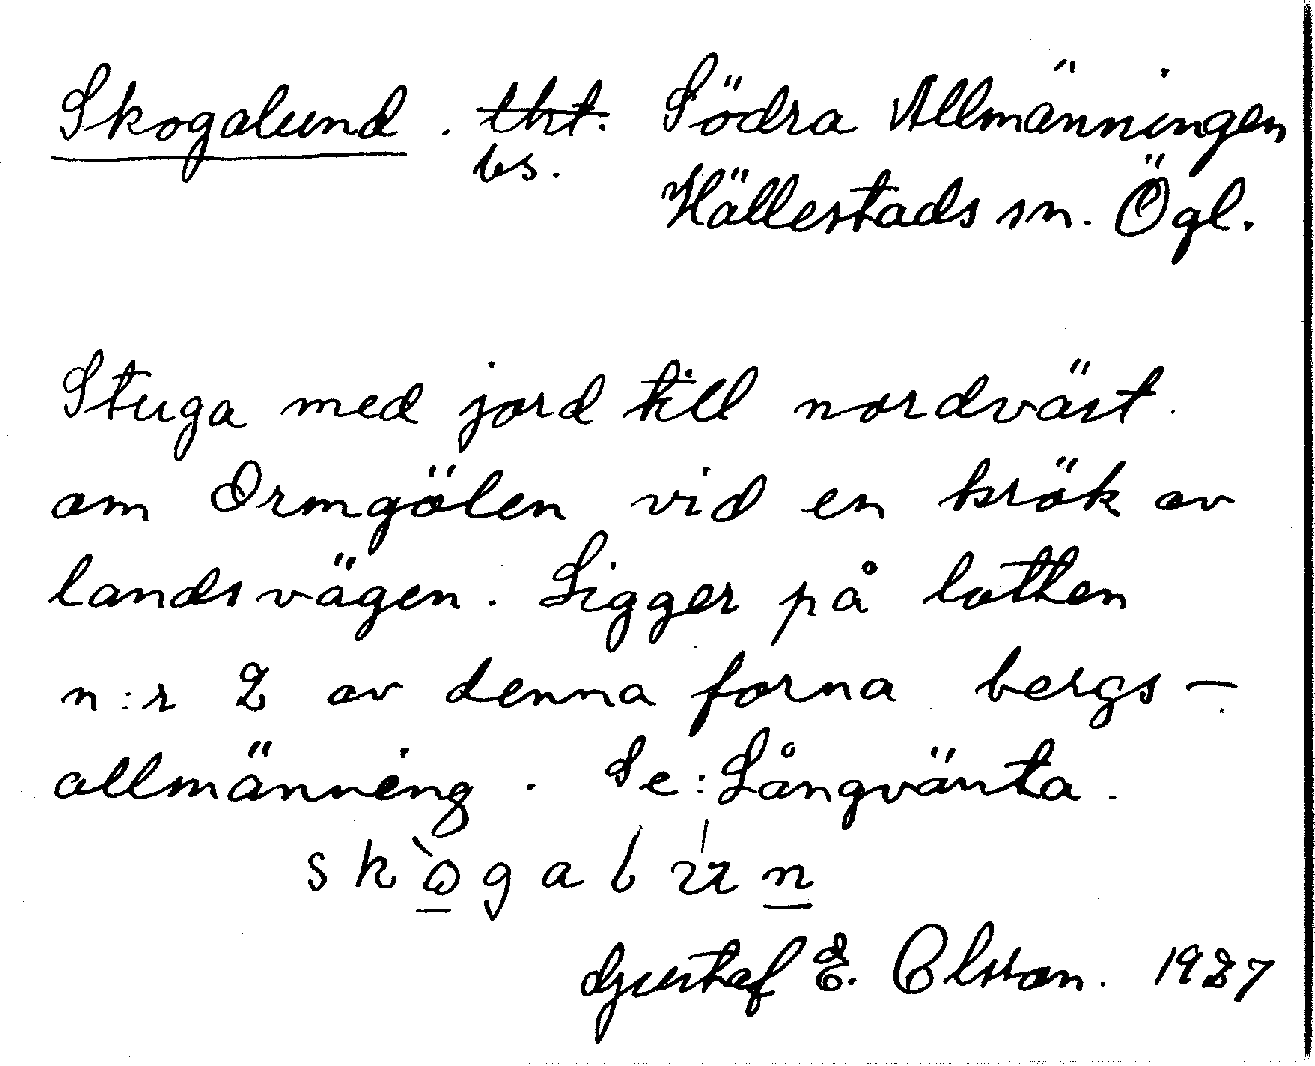 Skogalund. tht. Södra Allmänningen
bs. Hällestads sn. Ögl.
Stuga med jord till nordväst
om Ormgölen vid en krök av
landsvägen. Ligger på lotten
n:r 2 av denna forna bergs-
allmänning. Se: Långvänta.
Gustaf E. Olsson. 1927